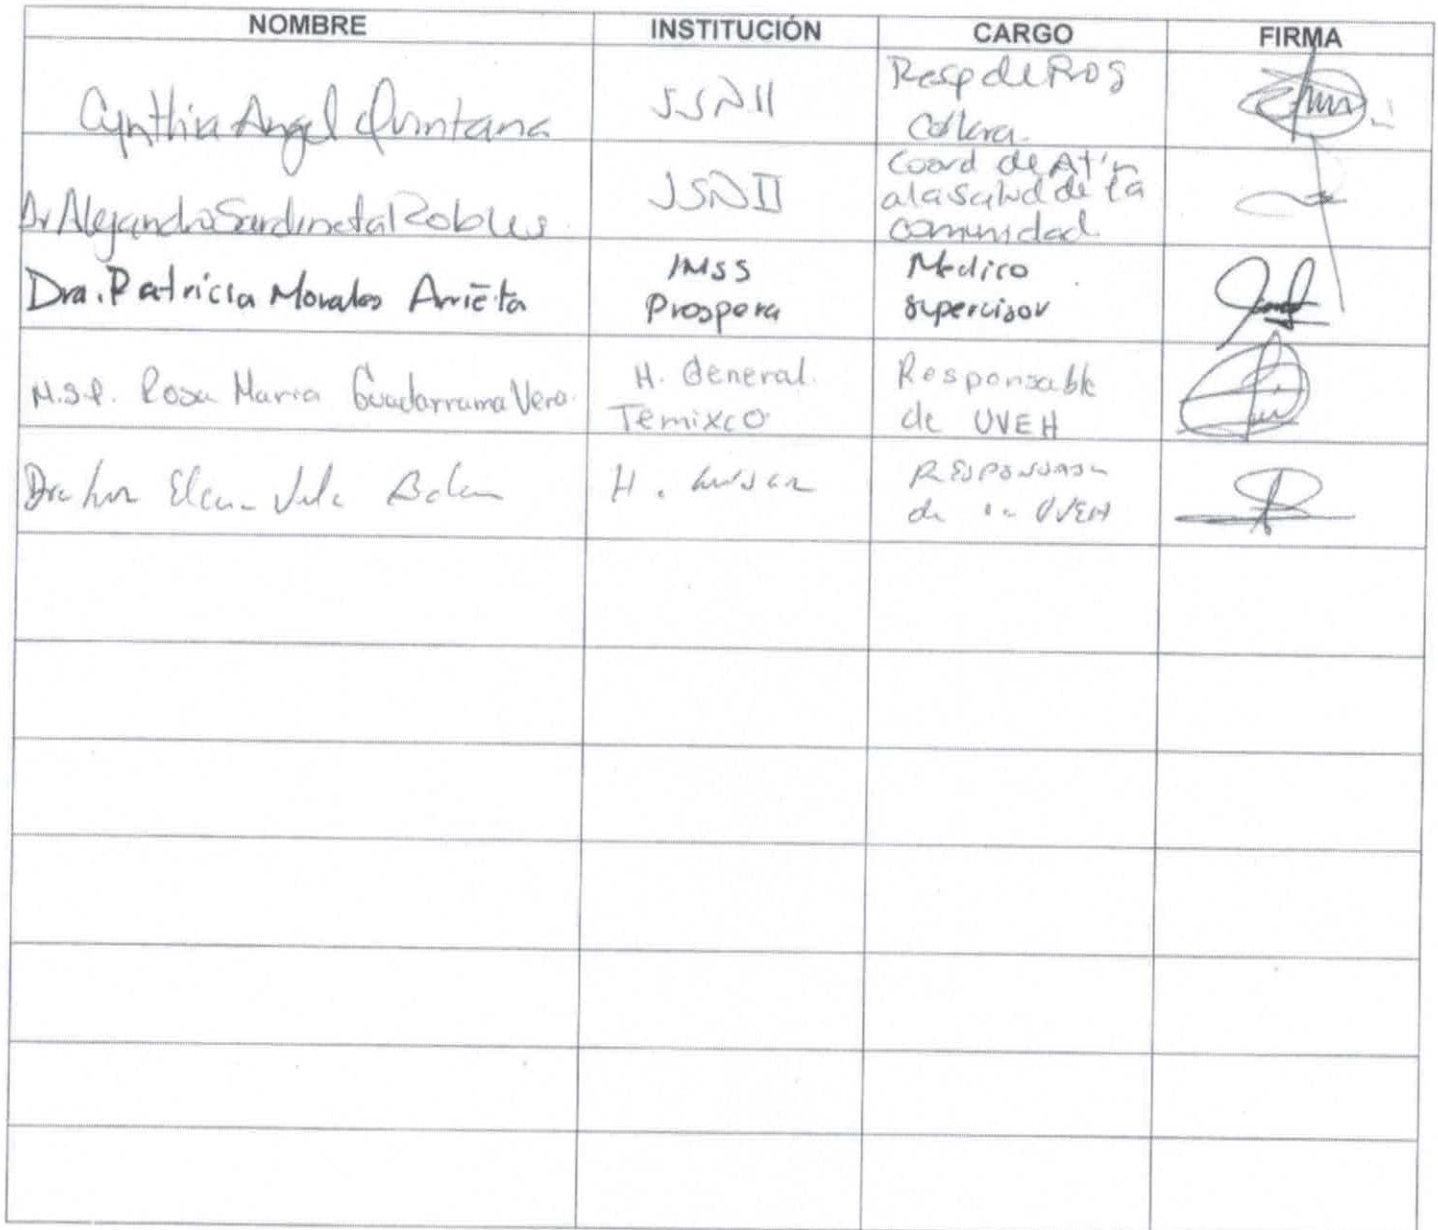 NOMBRE INSTITUCIÓN CARGO FIRMA
Cynthia Angel Quintana JSNII Resp de Prog
Colera.
Dr Alejandro Sardineta Robles JSNII Coord de At'n
a la Salud de la
comunidad
Dra. Patricia Morales Arrieta IMSS
Prospera Medico
supervisor
M.S.P. Rosa Maria Guadarrama Vera H. General.
Temixco Responsable
de UVEH
Elena H. Responsable
de la UVEH